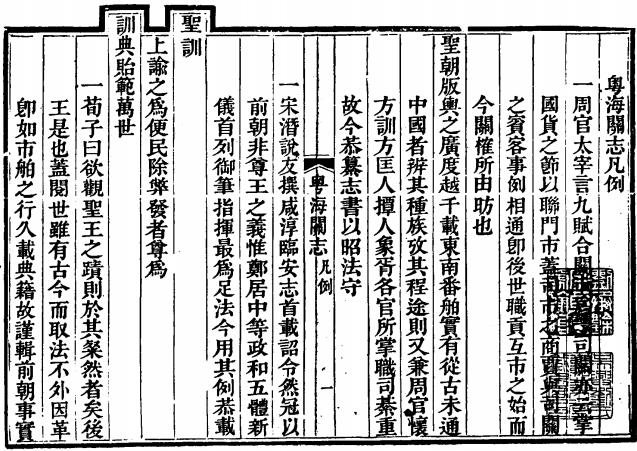 粤海關志凡例
一周官太宰言九賦合關市司關亦云掌
國貨之節以聯門市蓋司市之商賈與司關
之賓客事例相通卽後世職貢互市之始而
今關榷所由昉也
聖朝版輿之廣度越千載東南番舶實有從古未通
中國者辨其種族攷其程途則又兼周官懷
方訓方匡人撢人象胥各官所掌職司綦重
故今恭纂志書以昭法守
粤海關志 凡例 一
一宋潛說友撰咸淳臨安志首載詔令然冠以
前朝非尊王之義惟鄭居中等政和五體新
儀首列御筆指揮最爲足法今用其例恭載
聖訓
上諭之爲便民除弊發者尊爲
訓典貽範萬世
一荀子曰欲觀聖王之蹟則於其粲然者矣後
王是也蓋閱世雖有古今而取法不外因革
卽如市舶之行久載典籍故謹輯前朝事實